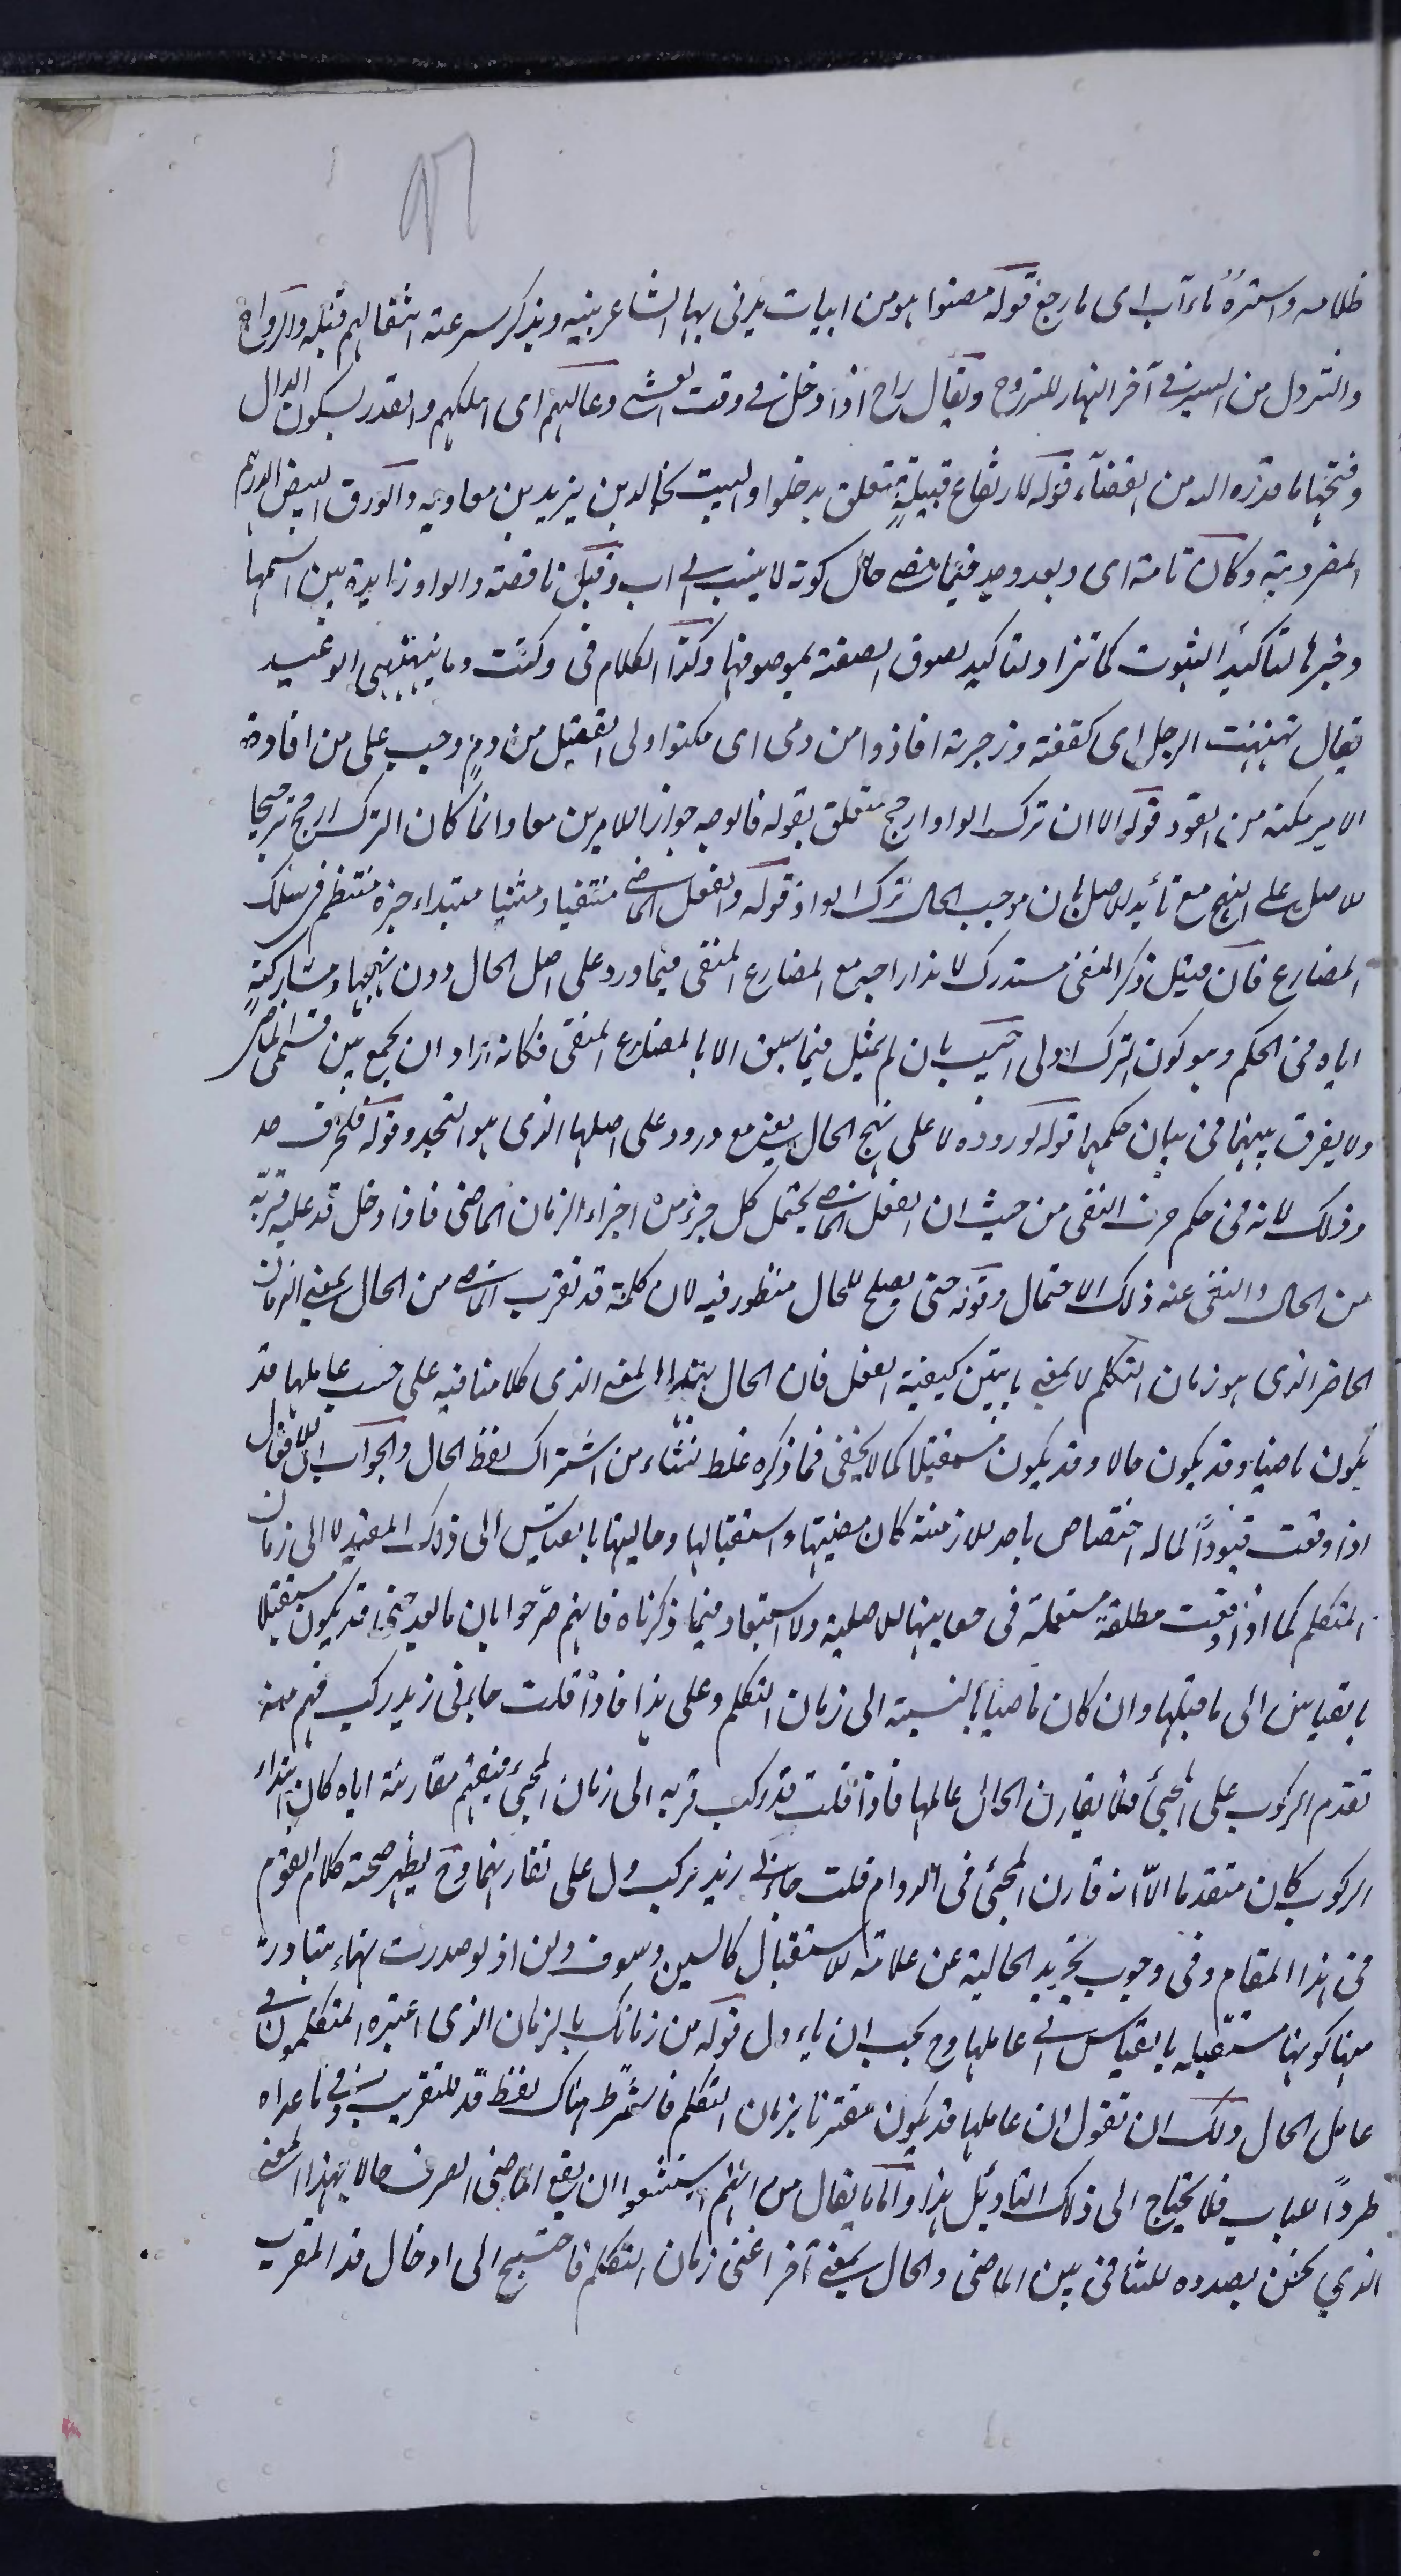 ظلامه واسترهُ ماءآب اى ما رجع قوله مصنوا هو من ابيات يرثى بها الشاعر بنيه ويذكر سرعة انتقالهم قبله والرواح
والنزول من السير فى آخر النهار للتروح ويقال راح اذا دخل فى وقت العشى وعالهم اى اهلكهم والقدر بسكون الدال
وفتحها ما قدره الله من القضآء قوله لارتفاع قبيلةٍ متعلق بدخلوا والبيت لخالد بن يزيد بن معاويه والورق البيض الدرهم
المضروبة وكان تامة اى وبعد وجد فيما مضى حال كونه لا ينسب الى اب وقيل ناقصة والواو زايدة بين اسمها
وخبرها لتاكيد الثبوت كما تزاد لتاكيد لصوق الصفة بموصوفها وكذا الكلام فى وكنت وما ينهنهنى الوعيد
يقال نهنهت الرجل اى كففته وزجرته افاذوا من دمى اى مكنوا ولى القتيل من دمٍ وجب على من افاده
الامير مكنه من القود قوله الا ان ترك الواو ارجح متعلق بقوله فالوجه جواز الامرين معا وانما كان الترك ارجح ترجيحا
للاصل على النهج مع تأيد الاصل بان موجب الحال ترك الواو قوله والفعل الماضى منتفيا ومثبتا مبتداء خبره منتظم فى سلك
المضارع فان قيل ذكر المنفى مستدرك لاندراجه مع المضارع المنفى فيما ورد على اصل الحال دون نهجها ومشاركته
اياه فى الحكم وهو كون الترك اولى اجيب بان لم يمثل فيما سبق الا بالمضارع المنفى فكانه اراد ان يجمع بين قسمى الماضى
ولا يفرق بينهما فى بيان حكمهما قوله لوروده لا على نهج الحال يعنى مع ورود على اصلها الذى هو التجدد وقوله فلحرف قد
وذلك لانه فى حكم حرف النفى من حيث ان الفعل الماضى يحتمل كل جزء من اجزاء الزمان الماضى فاذا دخل قد عليه قربّه
من الحال وانتفى عنه ذلك الاحتمال وقوله حتى يصلح للحال منظور فيه لان كلمة قد تقرب الماضى من الحال بمعنى الزمان
الحاضر الذى هو زمان التكلم لا بمعنى ما يبين كيفية الفعل فان الحال بهذا المعنى الذى كلامنا فيه على حسب عاملها قد
يكون ماضيا وقد يكون حالا وقد يكون مستقبلا كما لا يخفى فما ذكره غلط نشاء من اشتراك لفظ الحال والجواب ان الافعال
اذا وقعت قيوداً لما له اختصاص باحد الازمنة كان مضيتها واستقبالها وحاليتها بالقياس الى ذلك المقيد لا الى زمان
المتكلم كما اذا وقعت مطلقة مستعملة فى معانيها الاصلية ولا استبعاد فيما ذكرناه فانهم صرّحوا بان ما بعد حتى قد يكون مستقبلا
بالقياس الى ما قبلها وان كان ماضيا بالنسبة الى زمان التكلم وعلى هذا فاذا قلت جاءنى زيد ركب فهم منه
تقدم الركوب على المجئ فلا يقارن الحال عاملها فاذا قلت قد ركب قربه الى زمان المجئ فيفهم مقارنة اياه كان ابتداء
الركوب كان متقدما الاّ انه قارن المجئ فى الدوام قلت جاءنى زيد يركب دل على تقارنهما وح يظهر صحة كلام القوم
فى هذا المقام وفى وجوب تجريد الحالية عن علامة الاستقبال كالسين وسوف ولن اذ لو صدرت بها يتبادر
منها كونها مستقبله بالقياس الى عاملها وح يجب ان ياءول قوله من زمانك بالزمان الذى اعتبره المتكلمون فى
عامل الحال ولك ان تقول ان عاملها قد يكون مقترنا بزمان التكلم فاشترط هناك لفظ قد للتقريب وفى ما عداه
طرداً للباب فلا يحتاج الى ذلك التاويل هذا واما ما يقال من انهم استشنعوا ان يقع الماضى الصرف حالا بهذا المعنى
الذى نحن بصدده للتنافى بين الماضى والحال بمعنى آخر اعنى زمان التكلم فاحتيج الى ادخال قد المقرب